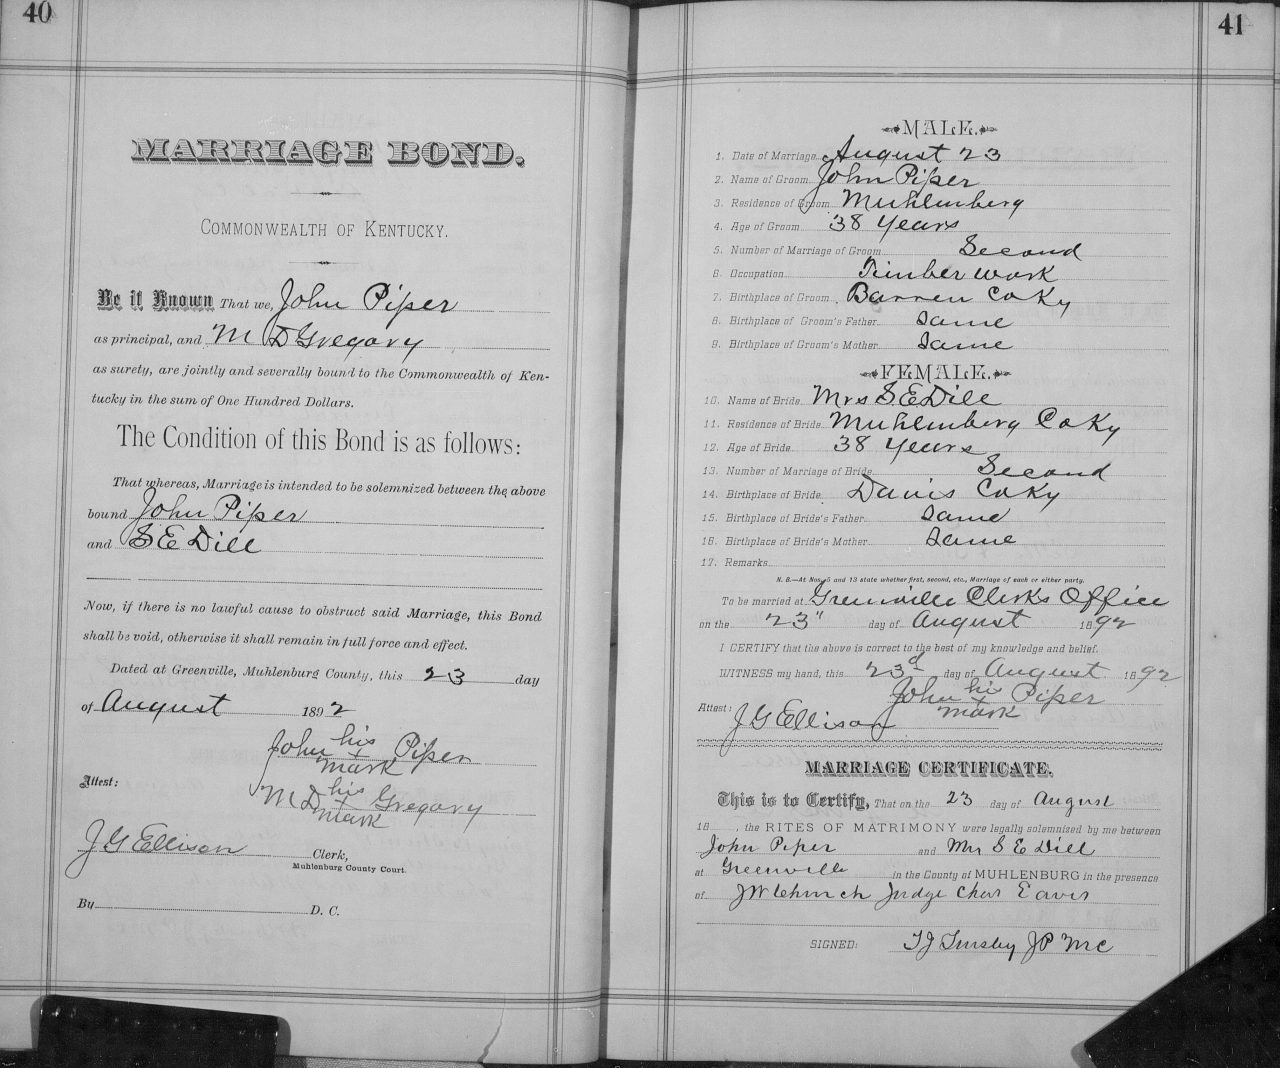 40
MARRIAGE BOND.
COMMONWEALTH OF KENTUCKY.
Be it Known That we, John Piper
as principal, and M D Gregory
as surety, are jointly and severally bound to the Commonwealth of Ken-
tucky in the sum of One Hundred Dollars.
The Condition of this Bond is as follows:
That whereas, Marriage is intended to be solemnized between the above
bound John Piper
and S E Dill
Now, if there is no lawful cause to obstruct said Marriage, this Bond
shall be void, otherwise it shall remain in full force and effect.
Dated at Greenville, Muhlenburg County, this 23 day
of August 1892
John his Piper
x
mark
Attest:
M D his Gregory
x
mark
J G Ellison Clerk,
Muhlenburg County Court.
By D. C.
41
MALE.
1. Date of Marriage August 23
2. Name of Groom John Piper
3. Residence of Groom Muhlenberg
4. Age of Groom 38 Years
5. Number of Marriage of Groom Second
6. Occupation Timber work
7. Birthplace of Groom Barren Co Ky
8. Birthplace of Groom's Father Same
9. Birthplace of Groom's Mother Same
FEMALE.
10. Name of Bride Mrs S E Dill
11. Residence of Bride Muhlenberg Co Ky
12. Age of Bride 38 Years
13. Number of Marriage of Bride Second
14. Birthplace of Bride Davis Co Ky
15. Birthplace of Bride's Father Same
16. Birthplace of Bride's Mother Same
17. Remarks
N. B.—At Nos. 5 and 13 state whether first, second, etc., Marriage of each or either party.
To be married at Greenville Clerks Office
on the 23" day of August 1892
I CERTIFY that the above is correct to the best of my knowledge and belief.
WITNESS my hand, this 23d day of August 1892
John his Piper
x
mark
Attest:
J G Ellison
MARRIAGE CERTIFICATE.
This is to Certify, That on the 23 day of August
18, the RITES OF MATRIMONY were legally solemnized by me between
John Piper and Mrs S E Dill
at Greenville in the County of MUHLENBURG in the presence
of J W Church Judge Chas Eaves
SIGNED: T J Tinsley J P M C